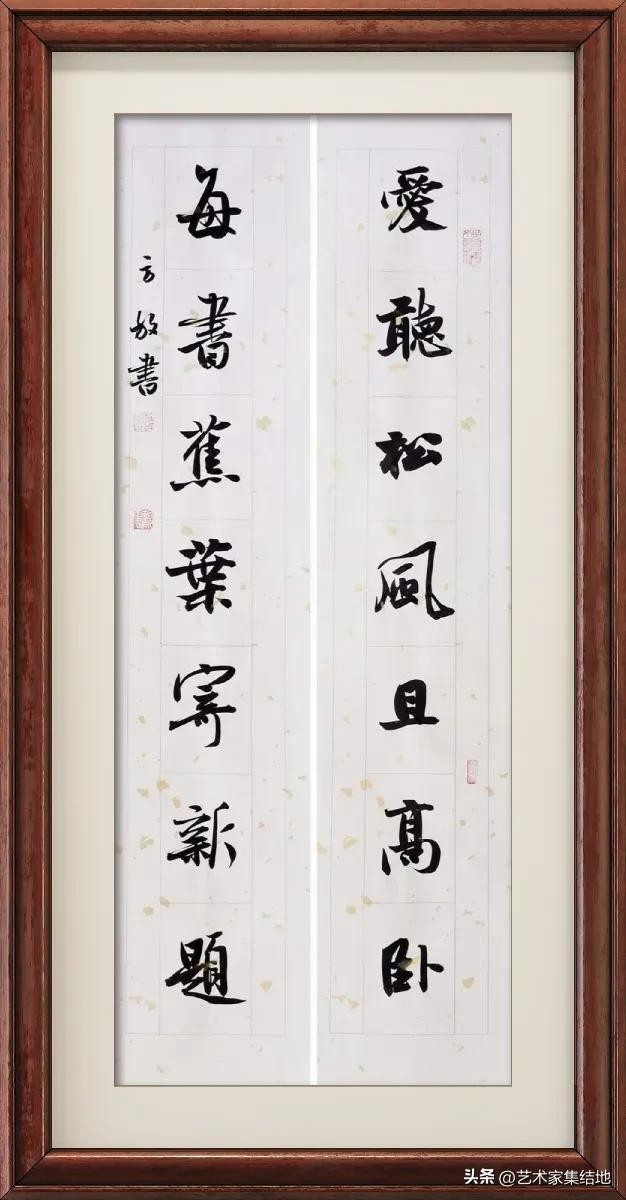 愛聽松風且高卧
每書蕉葉寄新題
方放書
头条 @艺术家集结地